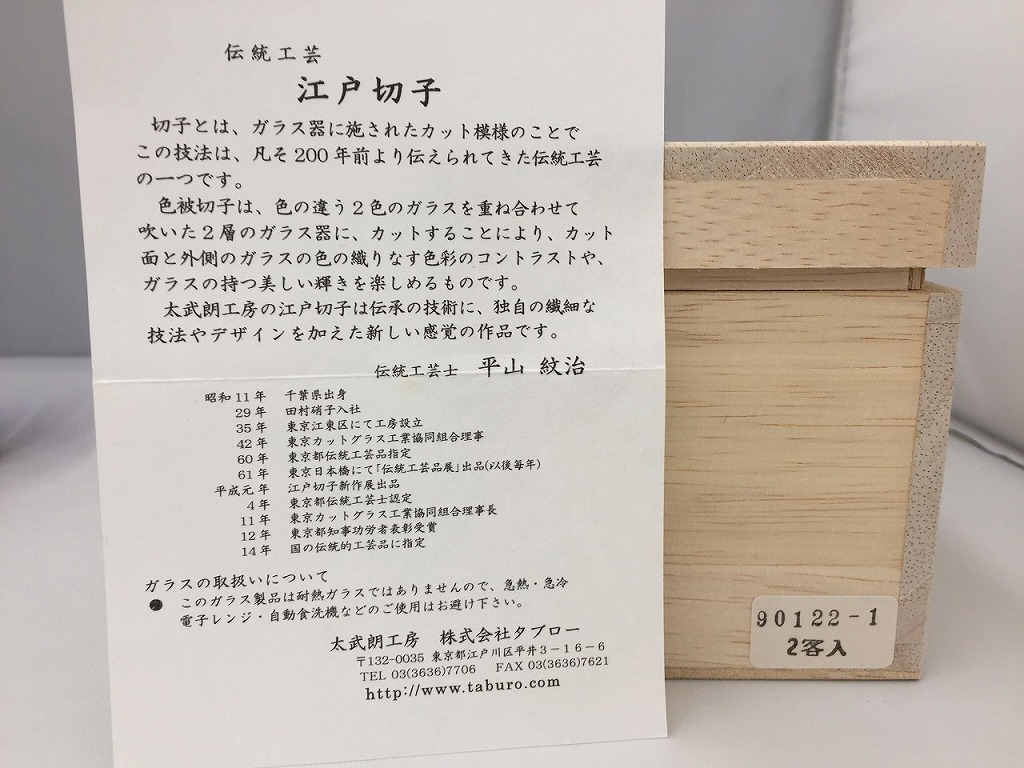 伝統工芸
江戸切子
切子とは、ガラス器に施されたカット模様のことで
この技法は、凡そ200年前より伝えられてきた伝統工芸
の一つです。
色被切子は、色の違う2色のガラスを重ね合わせて
吹いた2層のガラス器に、カットすることにより、カット
面と外側のガラスの色の織りなす色彩のコントラストや、
ガラスの持つ美しい輝きを楽しめるものです。
太武朗工房の江戸切子は伝承の技術に、独自の繊細な
技法やデザインを加えた新しい感覚の作品です。
伝統工芸士 平山 紋治
昭和11年 千葉県出身
29年 田村硝子入社
35年 東京江東区にて工房設立
42年 東京カットグラス工業協同組合理事
60年 東京都伝統工芸品指定
61年 東京日本橋にて「伝統工芸品展」出品(以後毎年)
平成元年 江戸切子新作展出品
4年 東京都伝統工芸士認定
11年 東京カットグラス工業協同組合理事長
12年 東京都知事功労者表彰受賞
14年 国の伝統的工芸品に指定
ガラスの取扱いについて
● このガラス製品は耐熱ガラスではありませんので、急熱・急冷
電子レンジ・自動食洗機などのご使用はお避け下さい。
太武朗工房 株式会社タブロー
〒132-0035 東京都江戸川区平井3-16-6
TEL 03(3636)7706 FAX 03(3636)7621
http://www.taburo.com
90122-1
2客入